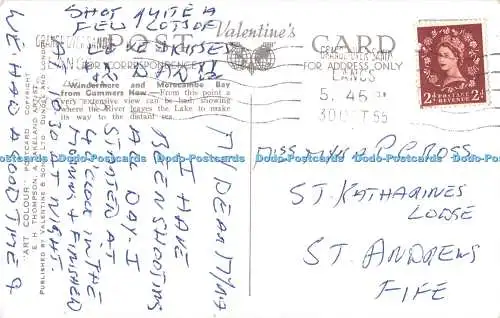 POST CARD
Valentine's
FOR CORRESPONDENCE
FOR ADDRESS ONLY
GRANGE OVER SANDS
GRANGE OVER SANDS
LANCS
5. 45 PM
30 OCT 55
2d POSTAGE REVENUE 2d
Windermere and Morecambe Bay
from Gummers How.—From this point a
very extensive view can be had, showing
where the River leaves the Lake to make
its way to the distant sea.
"ART COLOUR" POSTCARD
E. H. THOMPSON, A LAKELAND ARTIST.
PUBLISHED BY VALENTINE & SONS, LTD., DUNDEE AND LONDON
MY DEAR MYNA
I HAVE
BEEN SHOOTING
ALL DAY. I
STARTED AT
4 O'CLOCK IN THE
MORNING & FINISHED
LAST NIGHT.
WE HAD A GOOD TIME &
SHOT QUITE A
FEW LOTS OF
LOVE & KISSES
DADDY
MISS MYNA P. CROSS
ST. KATHARINES
LODGE
ST. ANDREWS
FIFE
Dodo-Postcards